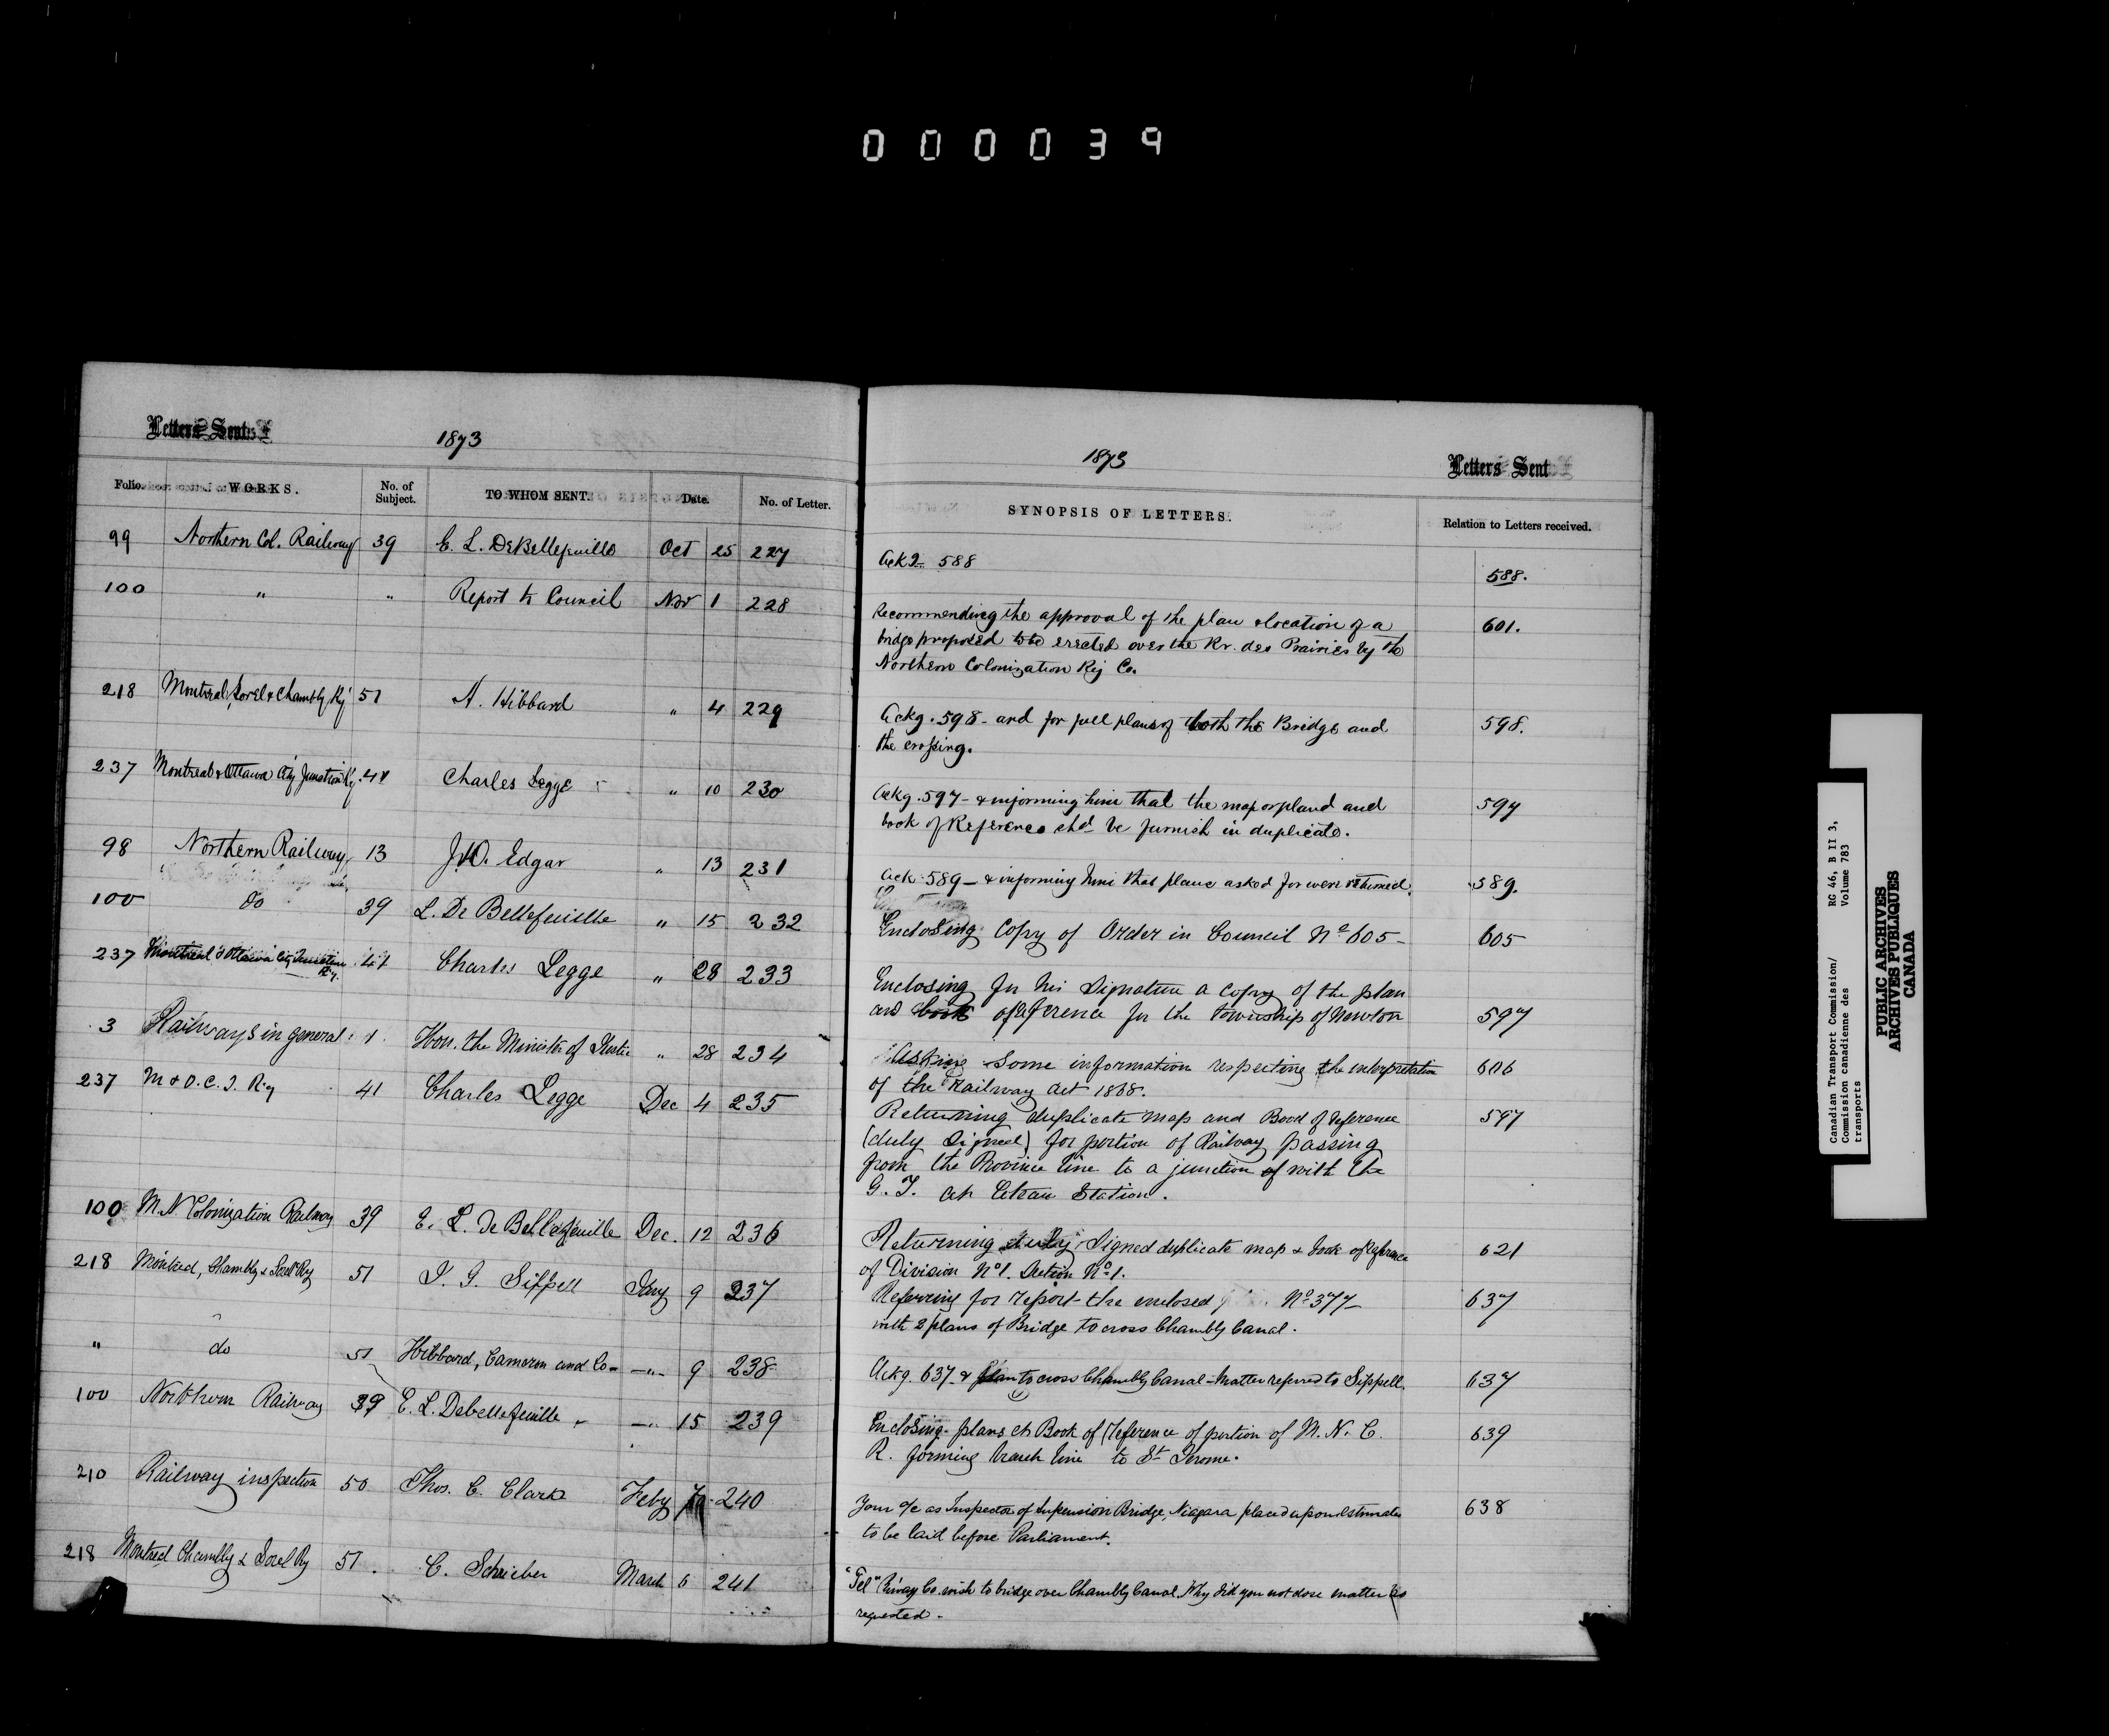 000039
Letters Sent
1873
Folio. WORKS. No. of Subject. TO WHOM SENT. Date. No. of Letter.
99 Northern Col. Railway 39 E. L. DeBellefeuille Oct 25 227
100 " " Report to Council Nov 1 228
218 Montreal, Sorel & Chambly Ry 51 A. Hibbard " 4 229
237 Montreal & Ottawa City Junction Ry. 41 Charles Legge " 10 230
98 Northern Railway 13 J. D. Edgar " 13 231
100 do 39 L. De Bellefeuille " 15 232
237 Montreal & Ottawa City Junction Ry. 41 Charles Legge " 28 233
3 Railways in general 1 Hon. the Minister of Justice " 28 234
237 M & O. C. J. Ry 41 Charles Legge Dec 4 235
100 M. N Colonization Railway 39 E. L. De Bellefeuille Dec. 12 236
218 Montreal, Chambly & Sorel Ry 51 J. G. Sippell Jany 9 237
" do 51 Hibbard, Cameron and Co - " - 9 238
100 Northern Railway 39 E. L. Debellefeuille - " 15 239
210 Railway inspection 50 Thos. C. Clark Feby 240
218 Montreal Chambly & Sorel Ry 51. C. Schreiber March 6 241
1873
Letters Sent
SYNOPSIS OF LETTERS. Relation to Letters received.
Ackg 588 588.
Recommending the approval of the plan & location of a 601.
bridge proposed to be erected over the Rr. des Prairies by the
Northern Colonization Ry Co.
Ackg. 598 - and for full plans of both the Bridge and 598.
the crossing.
Ackg. 597 - & informing him that the map or plan and 597
book of Reference shd be furnish in duplicate.
Ack 589 - & informing him that plans asked for were returned. 589.
Enclosing Copy of Order in Council No 605 - 605
Enclosing for his Signature a copy of the plan
and book of reference for the township of Newton 597
Asking some information respecting the interpretation 606
of the Railway Act 1868.
Returning duplicate map and Book of reference 597
(duly signed) for portion of Railway passing
from the Province line to a junction of with the
G. T. at Coteau Station.
Returning duly Signed duplicate map & book of Reference 621
of Division No 1. Section No 1.
Referring for report - the enclosed No 377 - 637
with 2 plans of Bridge to cross Chambly Canal.
Ackg. 637 - & plan to cross Chambly Canal - Matter referred to Sippell. 637
Enclosing - plans & Book of Reference of portion of M. N. C. 639
R. forming branch line to St Jerome.
Your a/c as Inspector of Suspension Bridge, Niagara placed upon estimates 638
to be laid before Parliament.
"Tel" Railway Co. wish to bridge over Chambly Canal. Why did you not close matter as
requested -
Canadian Transport Commission/ RG 46, B II 3,
Commission canadienne des Volume 783
transports
PUBLIC ARCHIVES
ARCHIVES PUBLIQUES
CANADA